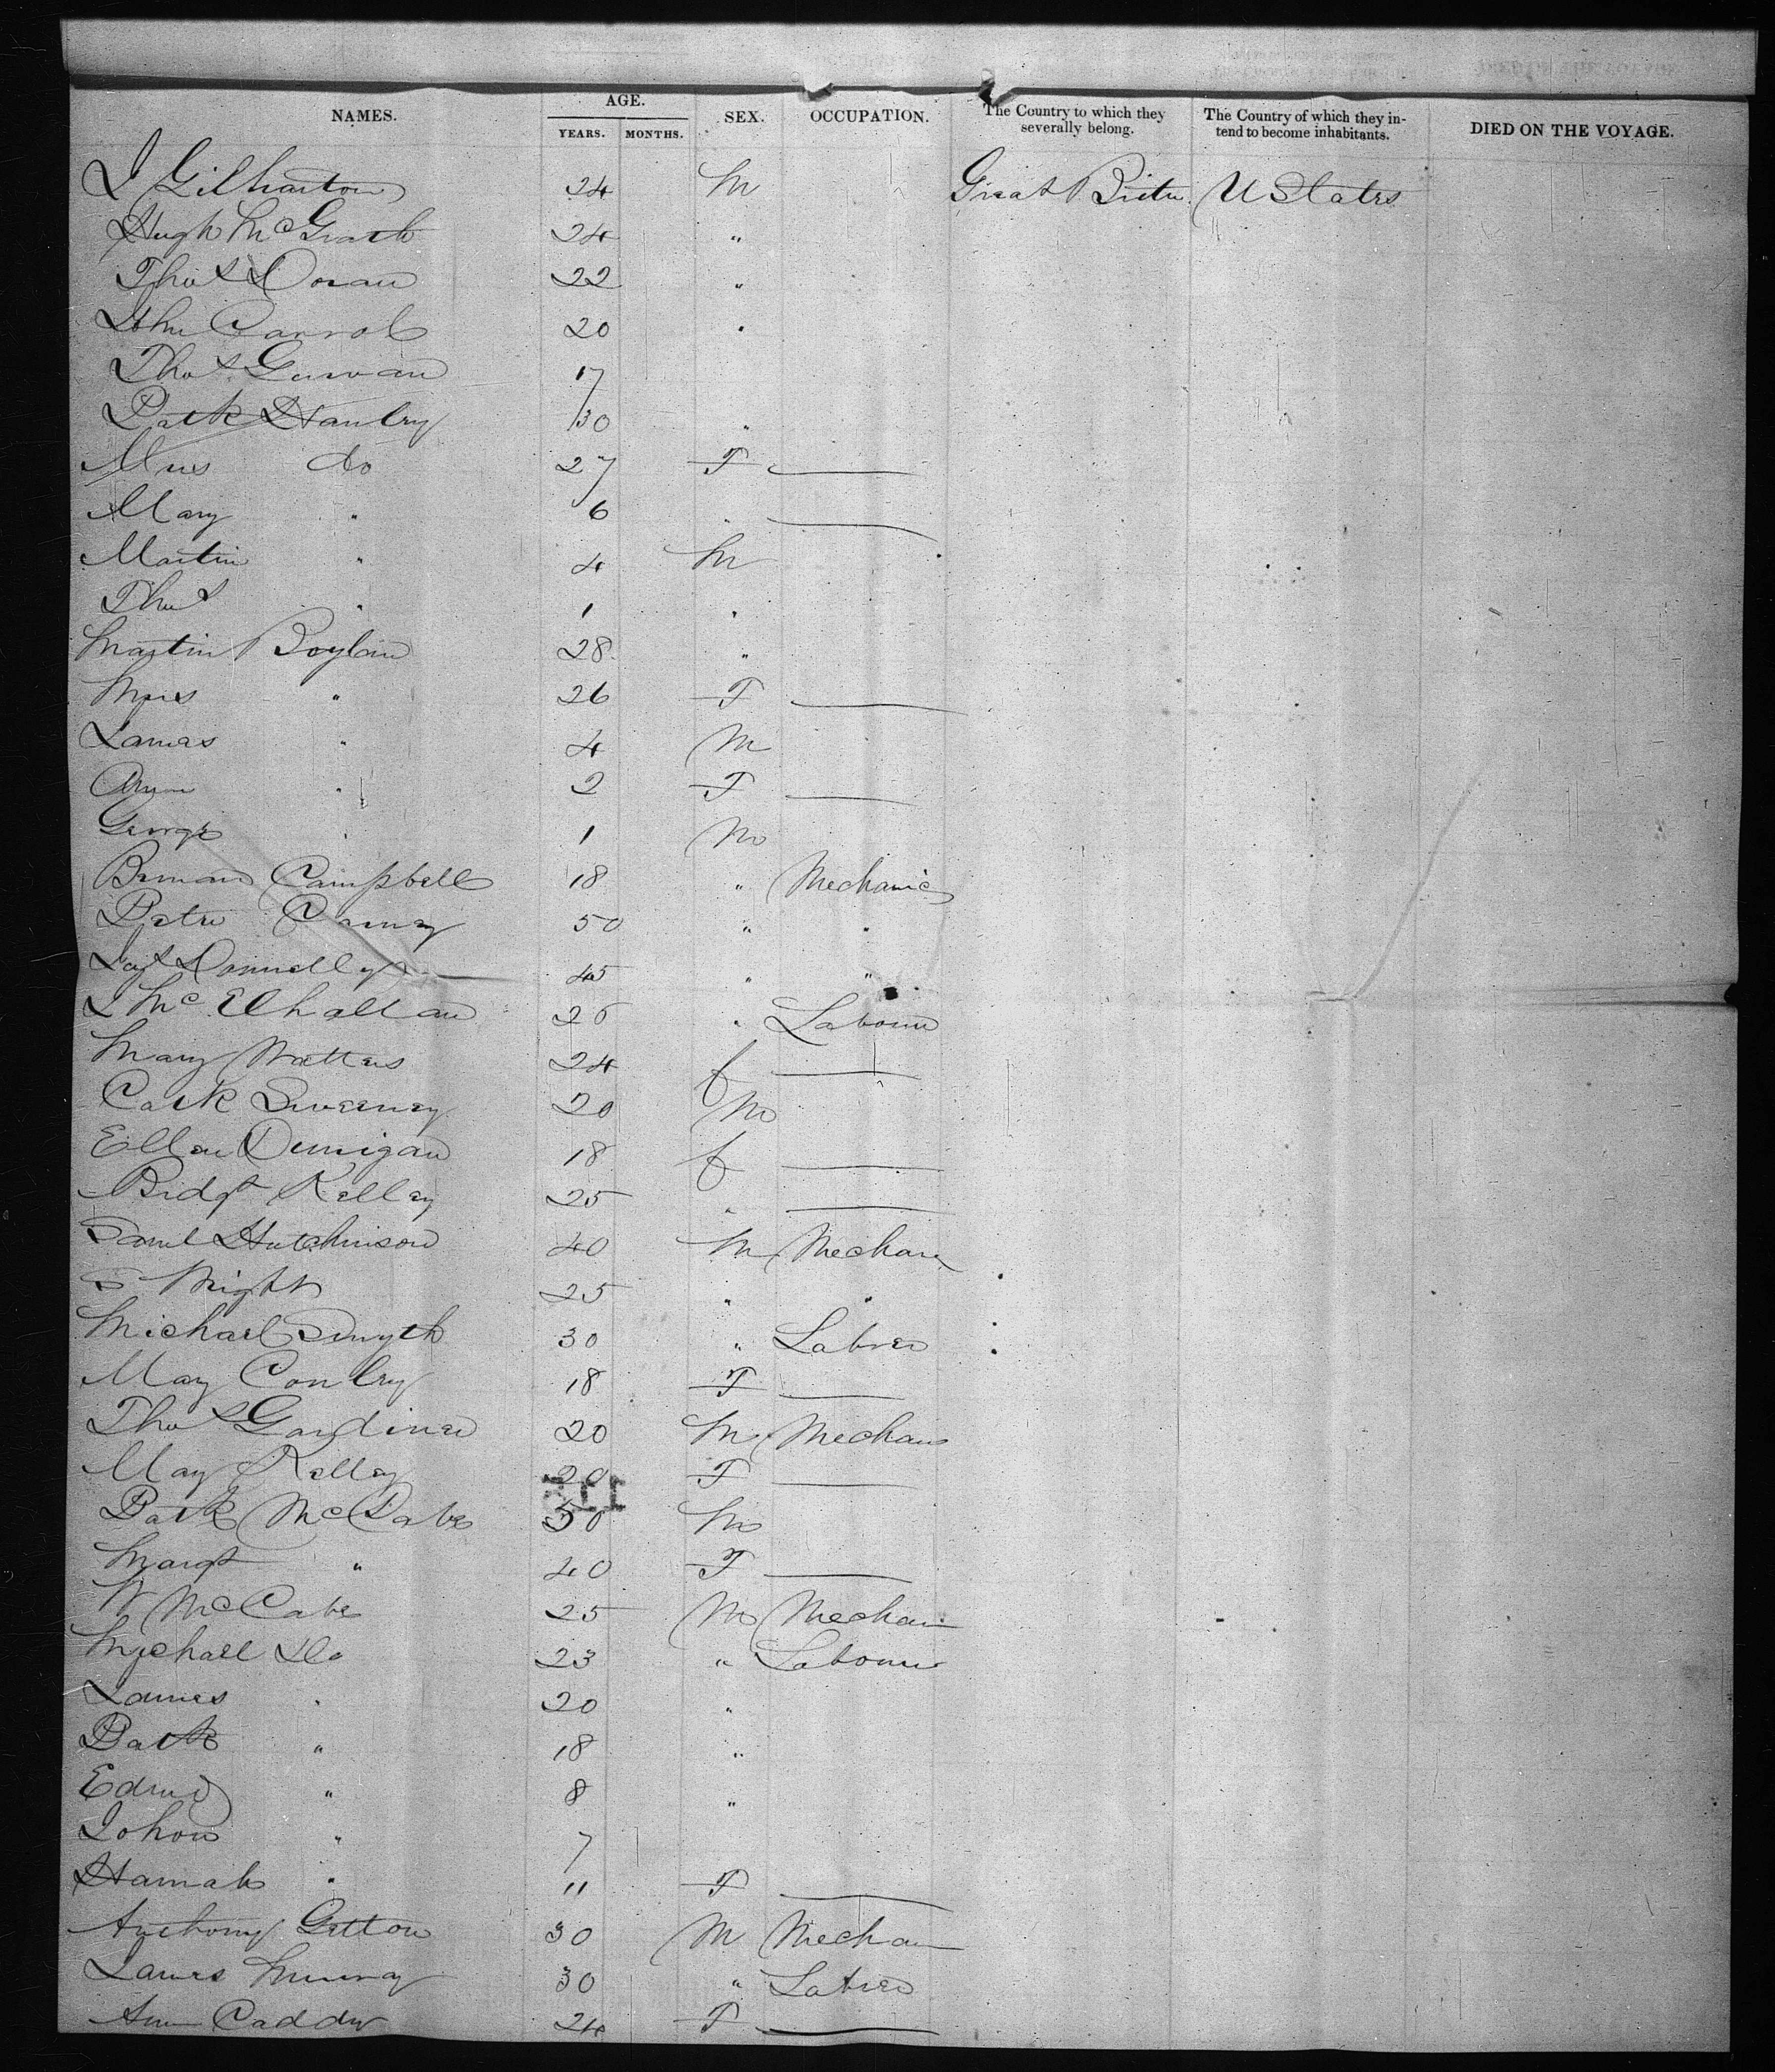 NAMES. AGE. YEARS. MONTHS. SEX. OCCUPATION. The Country to which they severally belong. The Country of which they intend to become inhabitants. DIED ON THE VOYAGE.
J 24 M Great Britn U States
Hugh McGrath 24 "
Thos Doran 22 "
John Carrol 20 "
Thos 17
Patk Hanley 30 "
Mrs do 27 F
Mary " 6 "
Martin " 4 M
Thos " 1 "
Martin Boylan 28 "
Mrs " 26 F
James " 4 M
Ann " 2 F
George " 1 M
Bernard Campbell 18 " Mechanic
Peter 50 " "
Jas Donnelly 45 " "
J McElhallan 26 " Labourer
Mary Watters 24 f
Cath Sweeney 20 M
Ellen Dunigan 18 f
Bridgt Kelley 25 "
Saml Hutchinson 40 M Mechanic
S Wright 25 " "
Michael Smyth 30 " Labrer
Mary Conley 18 F
Thos Gardiner 20 M Mechan
Mary Kelley 20 F
Patk McCabe 50 M
Margt " 40 F
W McCabe 25 M Mechan
Michael Do 23 " Labourer
James " 20 "
Patk " 18 "
Edmd " 8 "
John " 7
Hannah " 11 F
Anthony Getton 30 M Mechan
James Murray 30 " Labrer
Ann 24 F